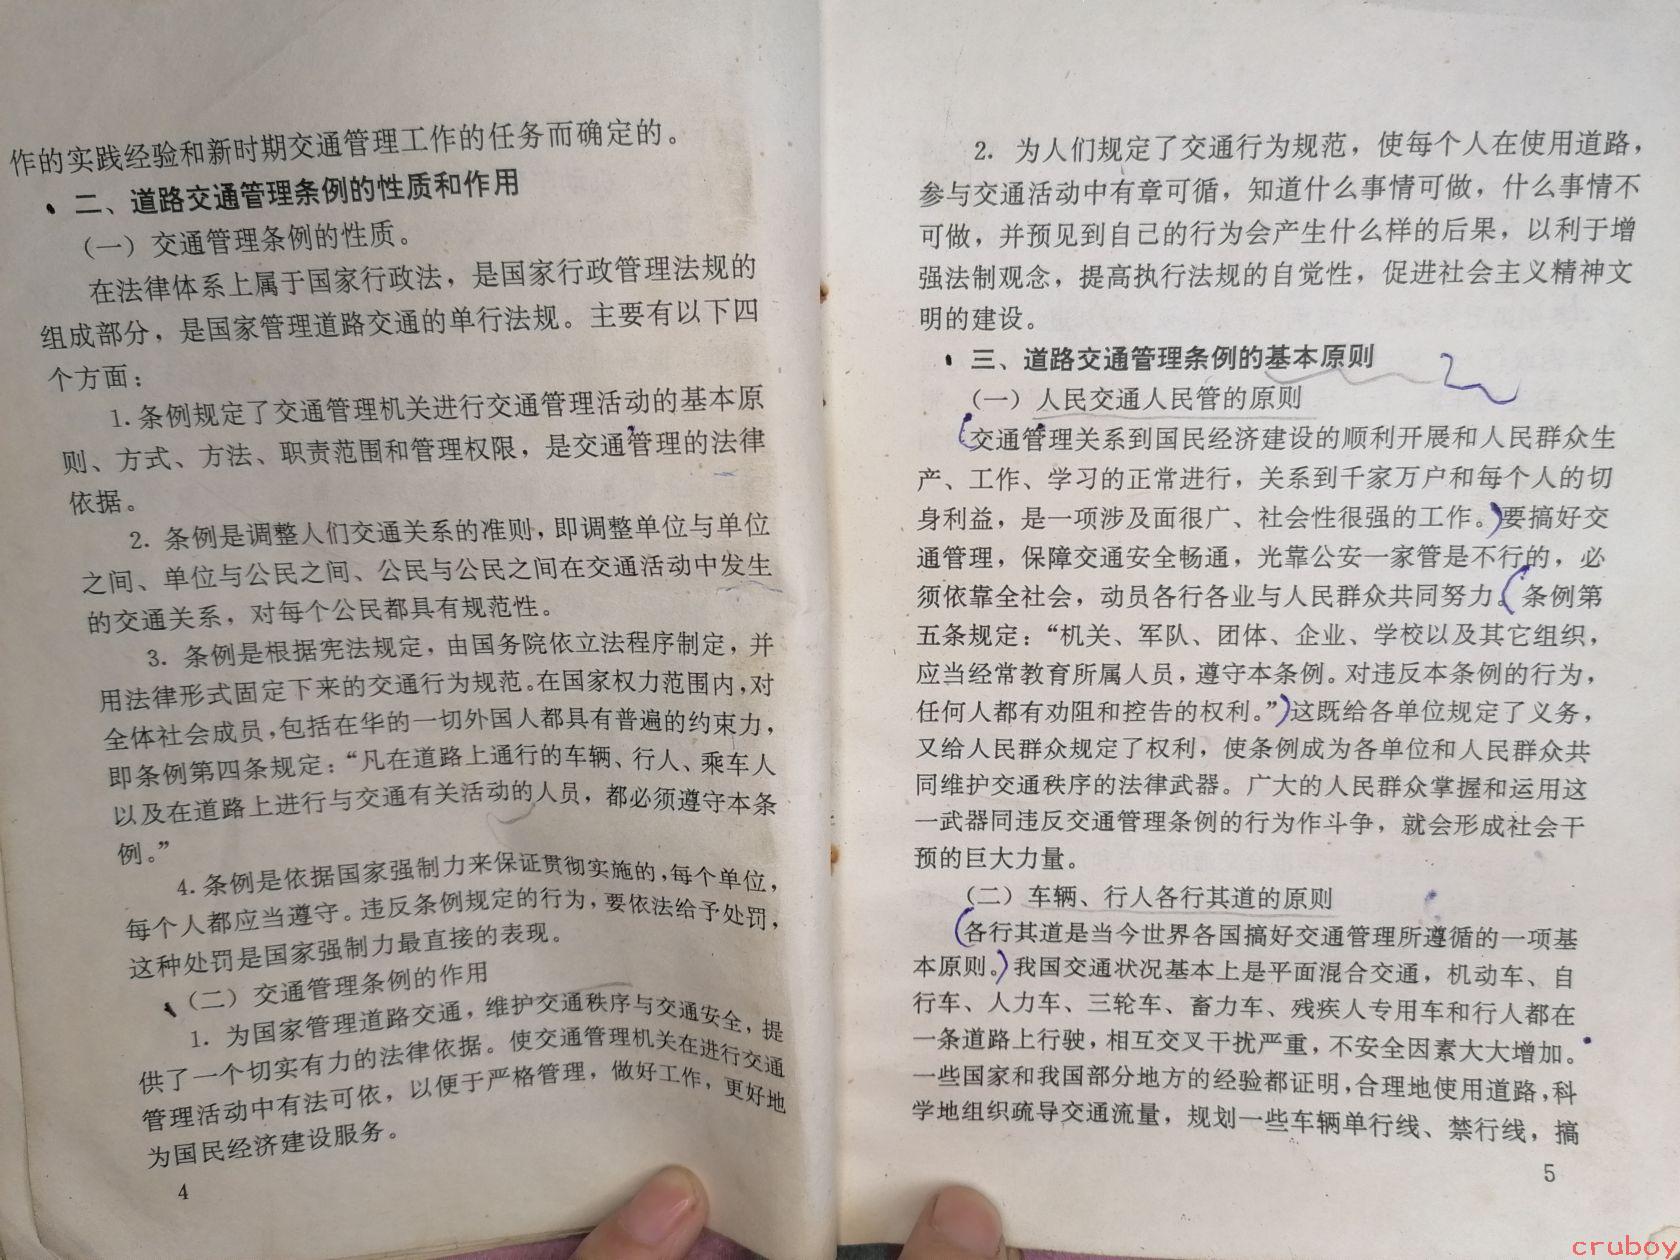 作的实践经验和新时期交通管理工作的任务而确定的。
二、道路交通管理条例的性质和作用
（一）交通管理条例的性质。
在法律体系上属于国家行政法，是国家行政管理法规的
组成部分，是国家管理道路交通的单行法规。主要有以下四
个方面：
1.条例规定了交通管理机关进行交通管理活动的基本原
则、方式、方法、职责范围和管理权限，是交通管理的法律
依据。
2. 条例是调整人们交通关系的准则，即调整单位与单位
之间、单位与公民之间、公民与公民之间在交通活动中发生
的交通关系，对每个公民都具有规范性。
3. 条例是根据宪法规定，由国务院依立法程序制定，并
用法律形式固定下来的交通行为规范。在国家权力范围内，对
全体社会成员，包括在华的一切外国人都具有普遍的约束力，
即条例第四条规定：“凡在道路上通行的车辆、行人、乘车人
以及在道路上进行与交通有关活动的人员，都必须遵守本条
例。”
4.条例是依据国家强制力来保证贯彻实施的，每个单位，
每个人都应当遵守。违反条例规定的行为，要依法给予处罚，
这种处罚是国家强制力最直接的表现。
（二）交通管理条例的作用
1. 为国家管理道路交通，维护交通秩序与交通安全，提
供了一个切实有力的法律依据。使交通管理机关在进行交通
管理活动中有法可依，以便于严格管理，做好工作，更好地
为国民经济建设服务。
4
2. 为人们规定了交通行为规范，使每个人在使用道路，
参与交通活动中有章可循，知道什么事情可做，什么事情不
可做，并预见到自己的行为会产生什么样的后果，以利于增
强法制观念，提高执行法规的自觉性，促进社会主义精神文
明的建设。
三、道路交通管理条例的基本原则
（一）人民交通人民管的原则
交通管理关系到国民经济建设的顺利开展和人民群众生
产、工作、学习的正常进行，关系到千家万户和每个人的切
身利益，是一项涉及面很广、社会性很强的工作。要搞好交
通管理，保障交通安全畅通，光靠公安一家管是不行的，必
须依靠全社会，动员各行各业与人民群众共同努力。条例第
五条规定：“机关、军队、团体、企业、学校以及其它组织，
应当经常教育所属人员，遵守本条例。对违反本条例的行为，
任何人都有劝阻和控告的权利。”这既给各单位规定了义务，
又给人民群众规定了权利，使条例成为各单位和人民群众共
同维护交通秩序的法律武器。广大的人民群众掌握和运用这
一武器同违反交通管理条例的行为作斗争，就会形成社会干
预的巨大力量。
（二）车辆、行人各行其道的原则
各行其道是当今世界各国搞好交通管理所遵循的一项基
本原则。我国交通状况基本上是平面混合交通，机动车、自
行车、人力车、三轮车、畜力车、残疾人专用车和行人都在
一条道路上行驶，相互交叉干扰严重，不安全因素大大增加。
一些国家和我国部分地方的经验都证明，合理地使用道路，科
学地组织疏导交通流量，规划一些车辆单行线、禁行线，搞
5
cruboy